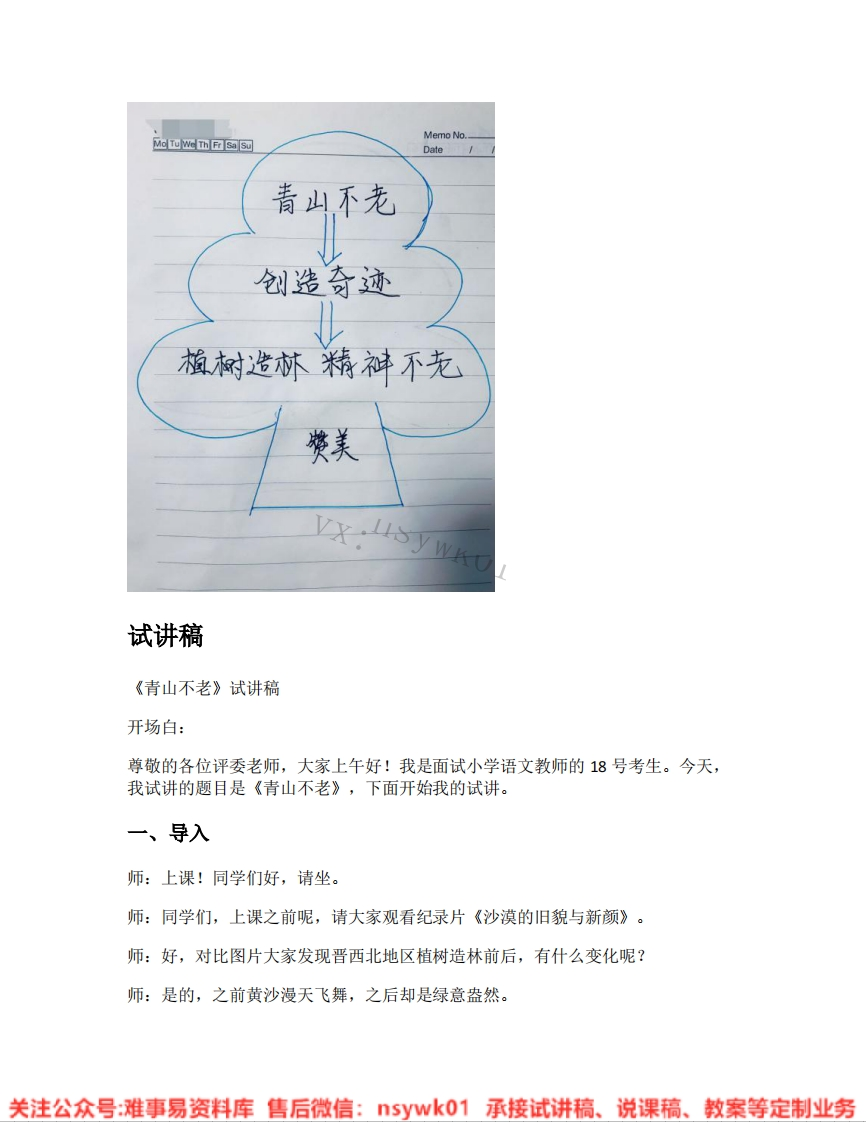 Memo No.
Mo Tu We Th Fr Sa Su
Date / /
青山不老
创造奇迹
植树造林 精神不老
赞美
VX:nsywk01
试讲稿
《青山不老》试讲稿
开场白：
尊敬的各位评委老师，大家上午好！我是面试小学语文教师的 18 号考生。今天，
我试讲的题目是《青山不老》，下面开始我的试讲。
一、导入
师：上课！同学们好，请坐。
师：同学们，上课之前呢，请大家观看纪录片《沙漠的旧貌与新颜》。
师：好，对比图片大家发现晋西北地区植树造林前后，有什么变化呢？
师：是的，之前黄沙漫天飞舞，之后却是绿意盎然。
关注公众号:难事易资料库 售后微信：nsywk01 承接试讲稿、说课稿、教案等定制业务